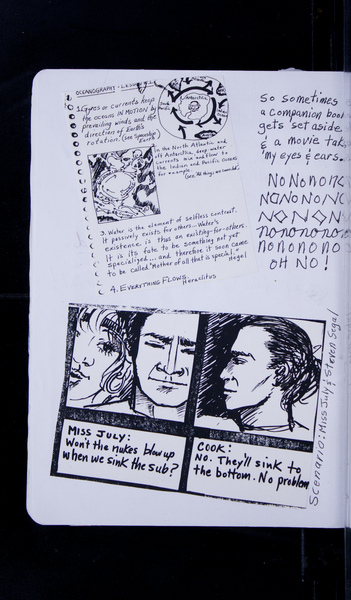 OCEANOGRAPHY - LESSON 1
1. Gyres or currents keep
the oceans IN MOTION by
prevailing winds and the
direction of Earth's
rotation. (See Spaceship
Earth
Antarctica
In the North Atlantic and
off Antarctica, deep water
currents rise and flow to
the Indian and Pacific Oceans
for example.
3. Water is the element of selfless contrast.
It passively exists for others... Water's
existence is thus an existing-for-others.
It is its fate to be something not yet
specialized... and therefore it soon came
to be called "Mother of all that is special."
Hegel
4. EVERYTHING FLOWS.
Heraclitus
So sometimes
a companion book
gets set aside
& a movie takes
'my eyes & ears.
No No No No
NO NO NO NO
NO NO NO NO
no no no no no
no no no no no
OH NO!
MISS JULY:
Won't the nukes blow up
when we sink the sub?
COOK:
No. They'll sink to
the bottom. No problem
Scenario: Miss July & Steven Segal